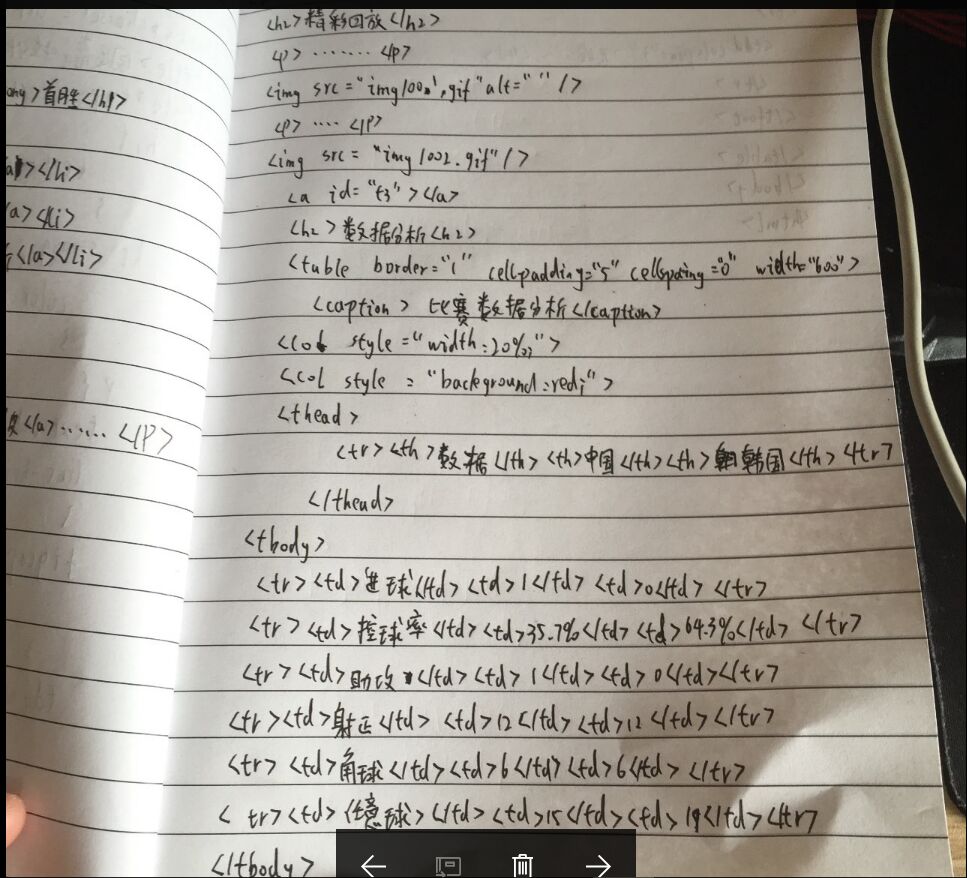 <h2>精彩回放</h2>
<p>.......<p>
<img src="img1001.gif"alt=" "/>
<p>....</p>
<img src="img1002.gif"/>
<a id="t3"></a>
<h2>数据分析<h2>
<table border="1" cellpadding="5" cellspaing="0" width="600">
<caption>比赛数据分析</caption>
<col style="width:20%;">
<col style="background:red;">
<thead>
<tr><th>数据</th><th>中国</th><th>韩国</th></tr>
</thead>
<tbody>
<tr><td>进球</td><td>1</td><td>0</td></tr>
<tr><td>控球率</td><td>35.7%</td><td>64.3%</td></tr>
<tr><td>助攻</td><td>1</td><td>0</td></tr>
<tr><td>射正</td><td>12</td><td>12</td></tr>
<tr><td>角球</td><td>6</td><td>6</td></tr>
<tr><td>球></td><td>15</td><td>19</td></tr>
</tbody>
ong>首胜</h1>
a></li>
a></li>
</a></li>
</a>......</p>